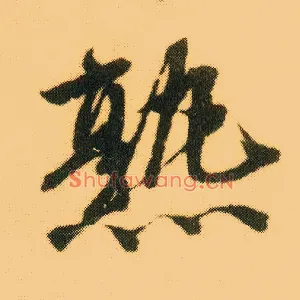 熟
Shufawang.CN